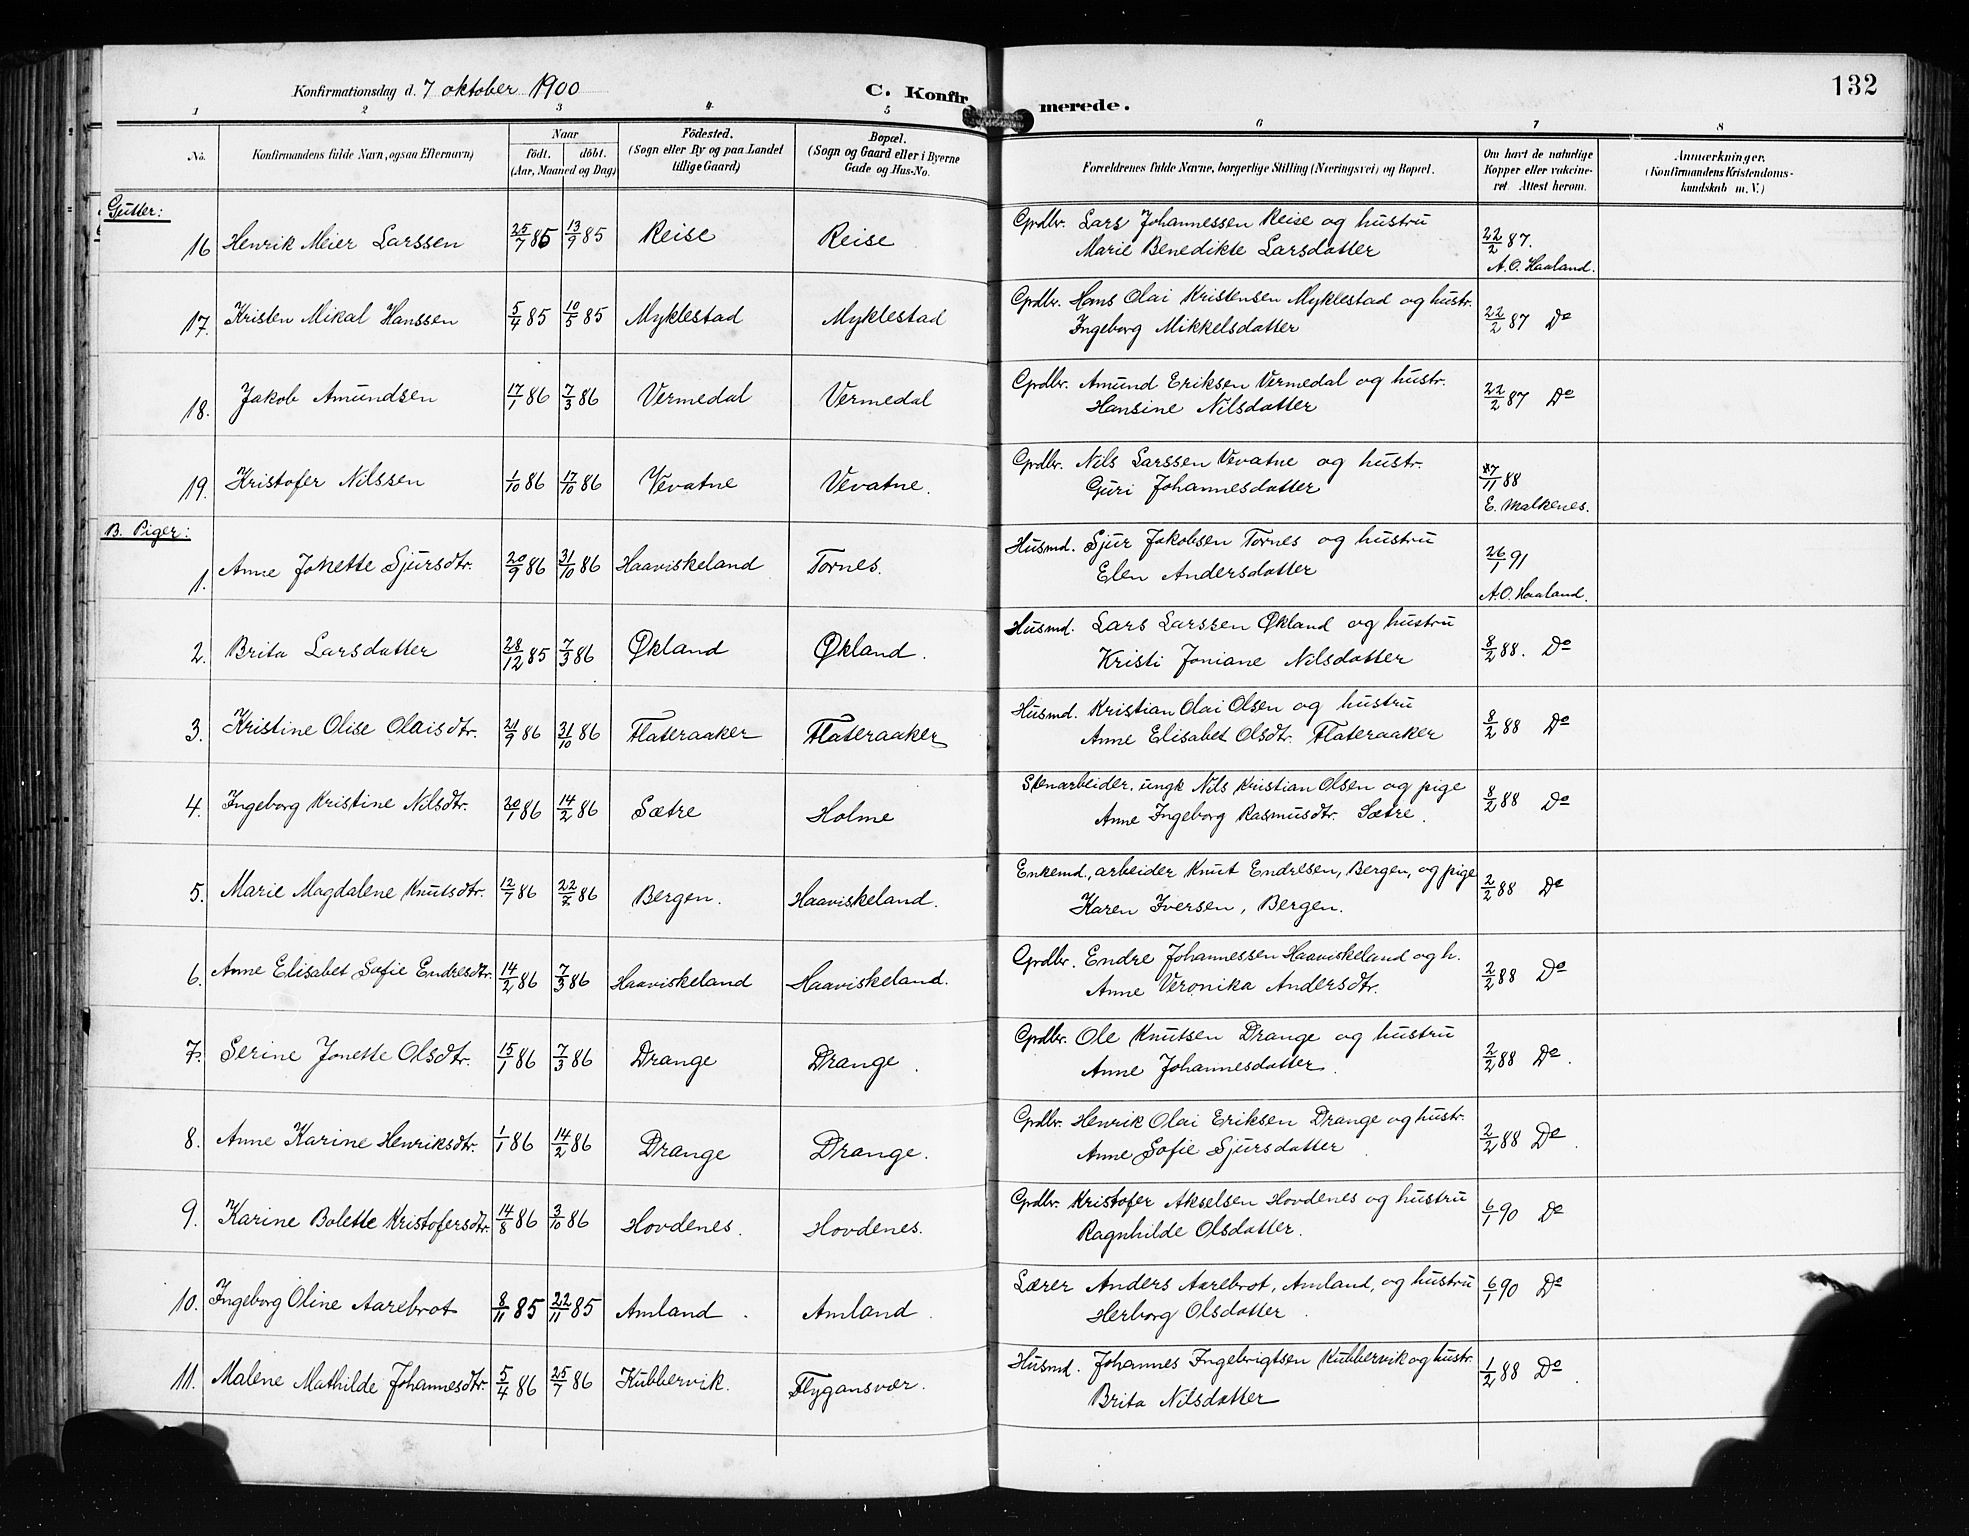 Konfirmationsdag d. 7 oktober 1900
C. Konfirmerede.
132
1 2 3 4 5 6 7 8
No.
Konfirmandens fulde Navn, ogsaa Efternavn)
Naar
født. døbt.
(Aar, Maaned og Dag)
Födested.
(Sogn eller By og paa Landet
tillige Gaard)
Bopæl.
(Sogn og Gaard eller i Byerne
Gade og Hus-No.
Forældrenes fulde Navne, borgerlige Stilling (Næringsvei) og Bopæl.
Om havt de naturlige
Kopper eller vakcine-
ret. Attest herom.
Anmærkninger.
(Konfirmandens Kristendoms-
kundskab m. V.)
Gutter:
16 Henrik Meier Larssen 25/7 85 13/9 85 Reise Reise Grdbr. Lars Johannessen Reise og hustru
Marie Benedikte Larsdatter 22/2 87.
A. O. Haaland.
17. Kristen Mikal Hanssen 5/4 85 10/5 85 Myklestad Myklestad Grdbr. Hans Olai Kristensen Myklestad og hustr.
Ingeborg Mikkelsdatter 22/2 87 Do
18. Jakob Amundsen 17/1 86 7/3 86 Vermedal Vermedal Grdbr. Amund Eriksen Vermedal og hustr.
Hansine Nilsdatter 22/2 87 Do
19. Kristofer Nilssen 1/10 86 17/10 86 Vevatne Vevatne. Grdbr. Nils Larssen Vevatne og hustr.
Guri Johannesdatter 7/11 88
E. Malkenes.
B. Piger:
1. Anne Jokette Sjursdtr. 20/9 86 31/10 86 Haaviskeland Tornes. Husmd. Sjur Jakobsen Tornes og hustru
Elen Andersdatter 26/1 91
A. O. Haaland.
2. Brita Larsdatter 28/12 85 7/3 86 Økland Økland. Husmd. Lars Larssen Økland og hustru
Kristi Joniane Nilsdatter 8/2 88. Do
3. Kristine Olise Olaisdtr. 21/9 86 31/10 86 Flateraaker Flateraaker Husmd. Kristian Olai Olsen og hustru
Anne Elisabet Olsdtr. Flateraaker 8/2 88 Do
4. Ingeborg Kristine Nilsdtr. 20/1 86 14/2 86 Sætre Holme Stenarbeider, ungk Nils Kristian Olsen og pige
Anne Ingeborg Rasmusdtr. Sætre. 8/2 88 Do
5. Marie Magdalene Knutsdtr. 12/7 86 22/7 86 Bergen. Haaviskeland. Enkemd., arbeider Knut Endresen, Bergen, og pige
Karen Iversen, Bergen. 2/2 88 Do
6. Anne Elisabet Sofie Endresdtr. 14/2 86 7/3 86 Haaviskeland Haaviskeland. Grdbr. Endre Johannessen Haaviskeland og h.
Anne Veronika Andersdtr. 2/2 88 Do
7. Serine Jonette Olsdtr. 15/1 86 7/3 86 Drange Drange. Grdbr. Ole Knutsen Drange og hustru
Anne Johannesdatter. 2/2 88 Do.
8. Anne Karine Henriksdtr. 1/1 86 14/2 86 Drange Drange. Grdbr. Henrik Olai Eriksen Drange og hustr.
Anne Sofie Sjursdatter 2/2 88 Do.
9. Karine Bolette Kristofersdtr. 14/8 86 3/10 86 Hovdenes. Hovdenes. Grdbr. Kristofer Akselsen Hovdenes og hustru
Ragnhilde Olsdatter. 6/1 90 Do
10. Ingeborg Oline Aarebrot 8/11 85 22/11 85 Amland. Amland. Lærer Anders Aarebrot, Amland, og hustru
Herborg Olsdatter. 6/1 90 Do
11. Malene Mathilde Johannesdtr. 5/4 86 25/7 86 Kubbervik. Flygansvær. Husmd. Johannes Ingebrigtsen Kubbervik og hustr.
Brita Nilsdatter 1/2 88 Do.